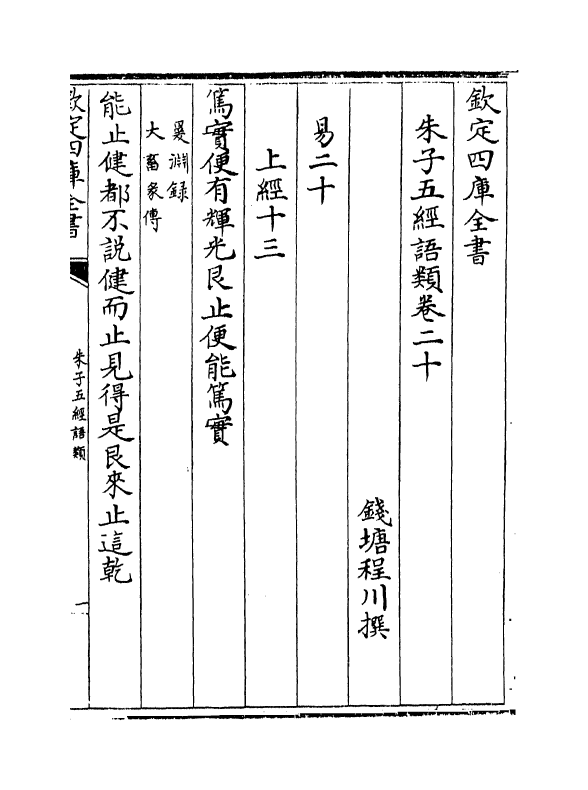 欽定四庫全書
朱子五經語類卷二十
錢塘程川撰
易二十
上經十三
篤實便有輝光艮止便能篤實
㬊淵録
大畜彖傳
能止健都不説健而止見得是艮來止這乾
欽定四庫全書
朱子五經語類
一